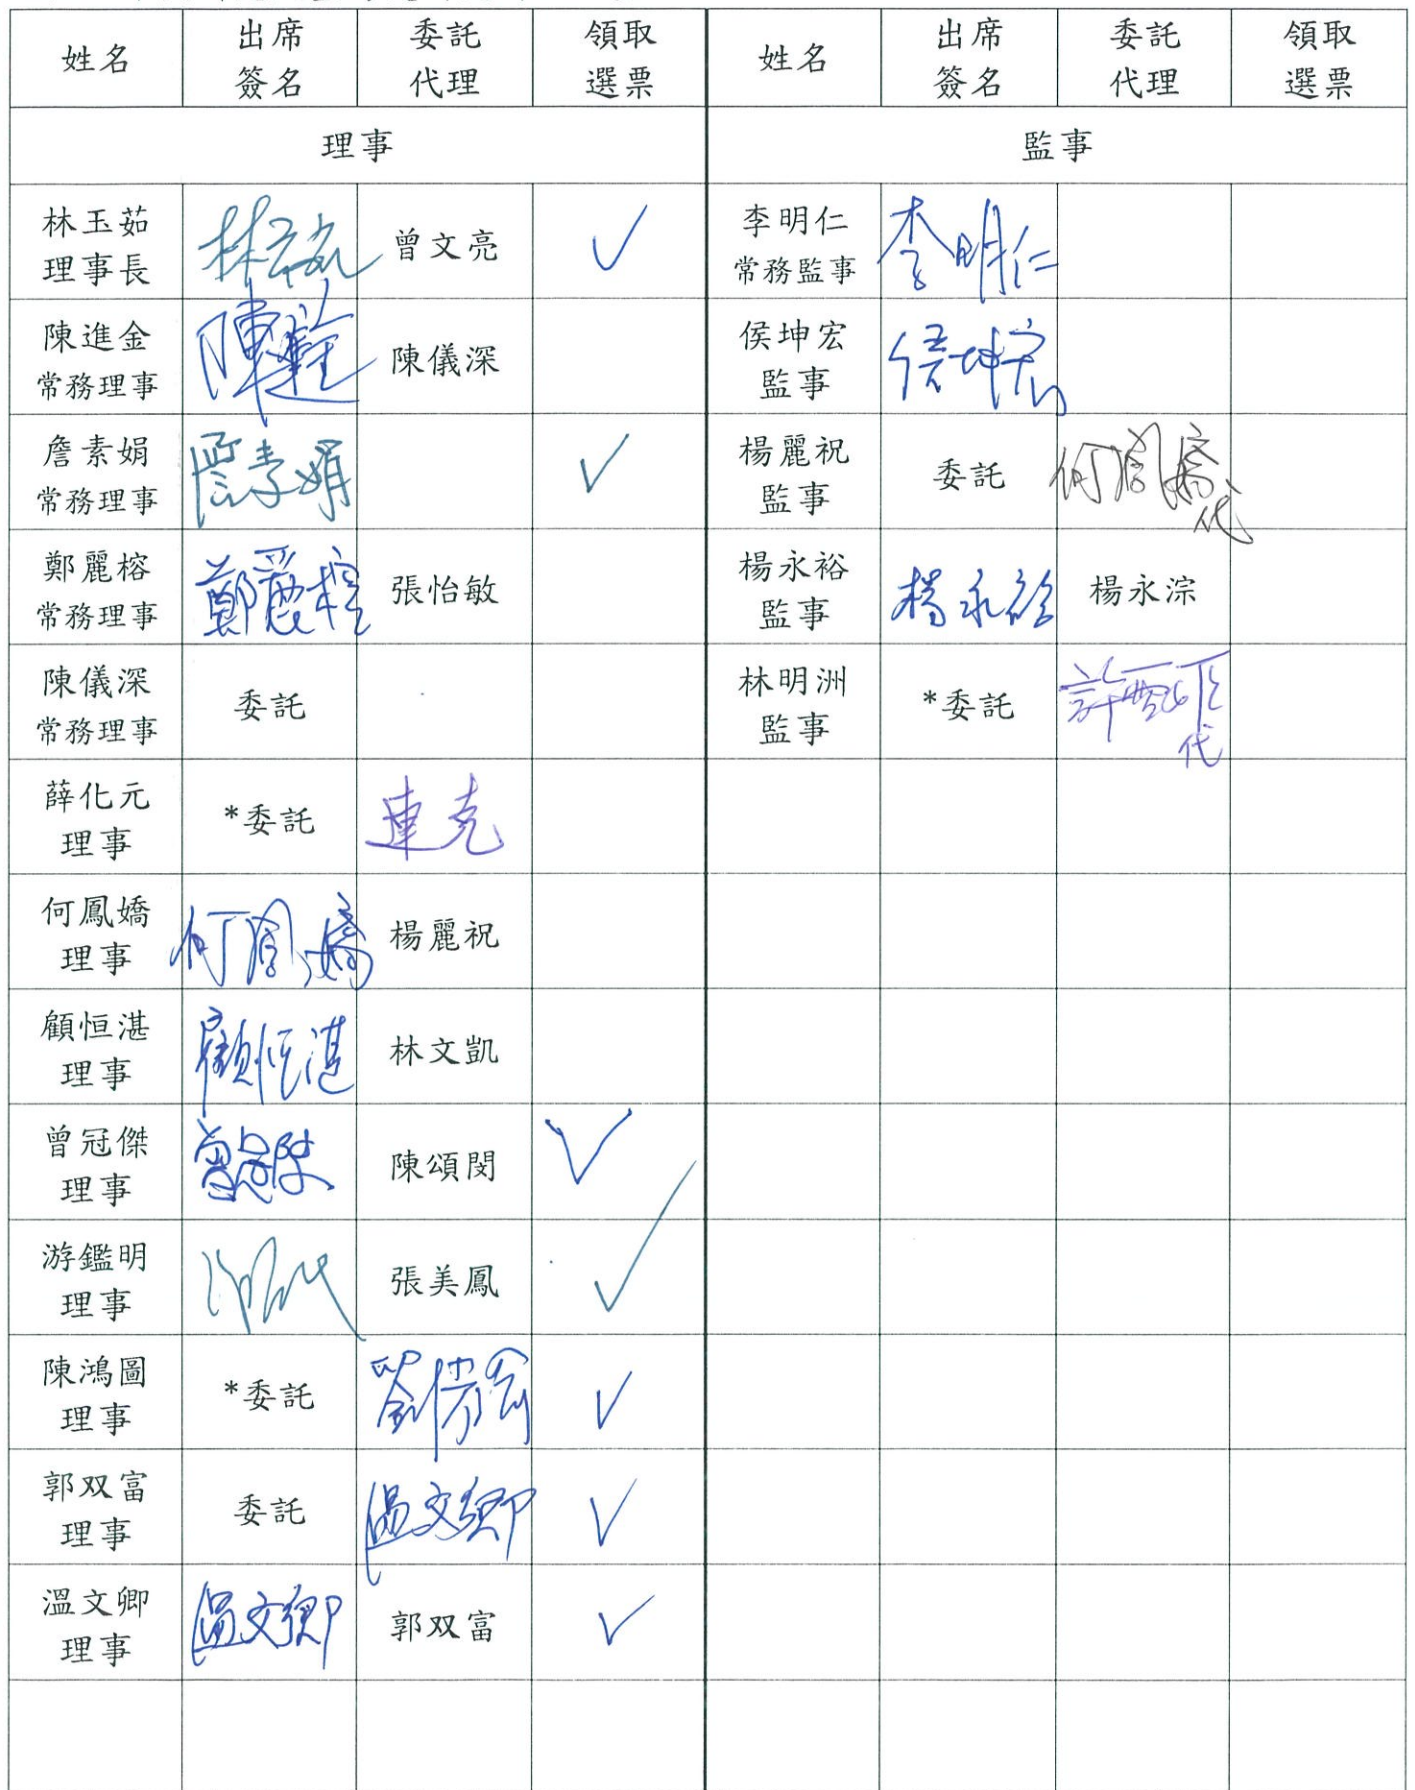 姓名 出席簽名 委託代理 領取選票 姓名 出席簽名 委託代理 領取選票
理事 監事
林玉茹 李明仁
理事長 林玉茹 曾文亮 ✓ 常務監事 李明仁
陳進金 侯坤宏
常務理事 陳進金 陳儀深 監事 侯坤宏
詹素娟 楊麗祝
常務理事 詹素娟 ✓ 監事 委託 何鳳嬌代
鄭麗榕 楊永裕
常務理事 鄭麗榕 張怡敏 監事 楊永裕 楊永淙
陳儀深 林明洲
常務理事 委託 監事 *委託 代
薛化元
理事 *委託 連克
何鳳嬌
理事 何鳳嬌 楊麗祝
顧恒湛
理事 顧恒湛 林文凱
曾冠傑
理事 曾冠傑 陳頌閔 ✓
游鑑明
理事 張美鳳 ✓
陳鴻圖
理事 *委託 ✓
郭双富
理事 委託 溫文卿 ✓
溫文卿
理事 溫文卿 郭双富 ✓